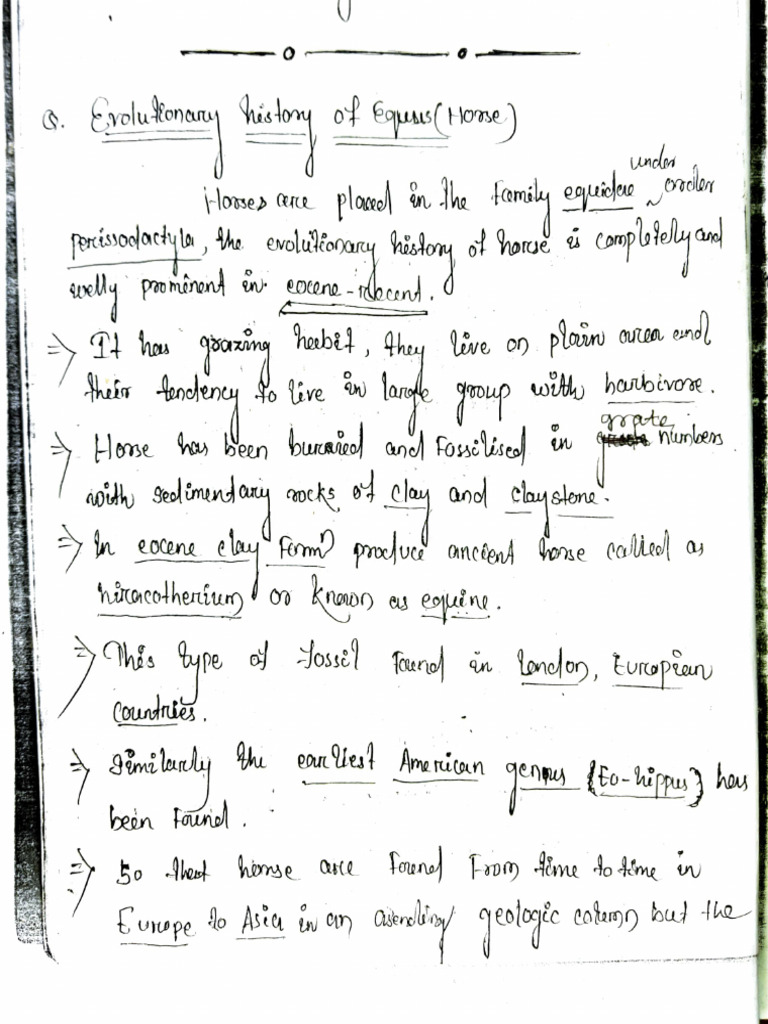 Q. Evolutionary history of Equus (Horse)
Horses are placed in the family equidae under order
perissodactyla, the evolutionary history of horse is completely and
welly prominent in eocene-recent.
⇒ It has grazing habit, they live on plain area and
their tendency to live in large group with harbivore.
⇒ Horse has been buraried and fossilised in grate numbers
with sedimentary rocks of clay and claystone.
⇒ In eocene clay form produce ancient horse called as
hiracotherium or known as equine.
⇒ This type of fossil found in London, European
countries.
⇒ Similarly the earliest American genus {Eo-hippus} has
been found.
⇒ So that horse are found from time to time in
Europe to Asia in an asending geologic column but the